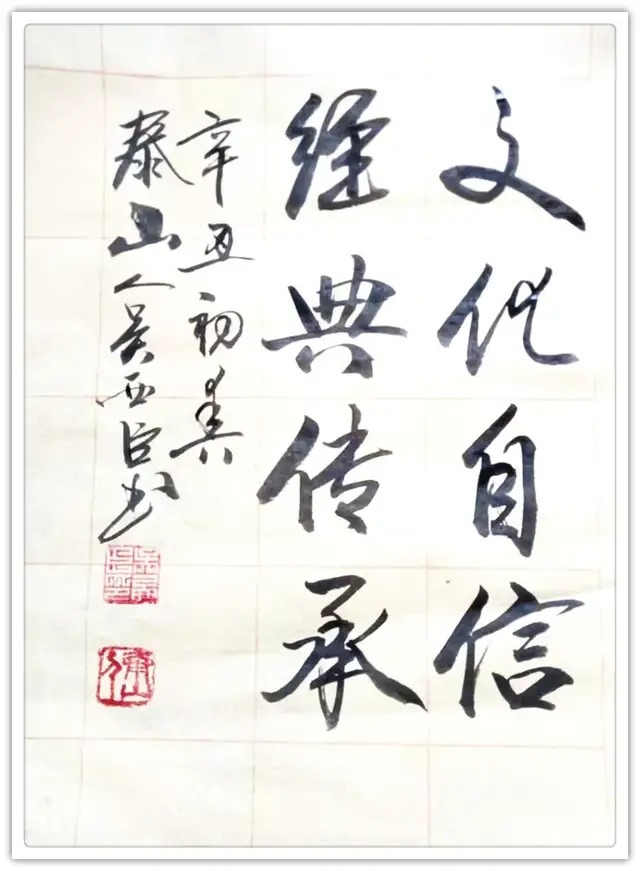 文化自信
经典传承
辛丑初
泰山人吴西臣书